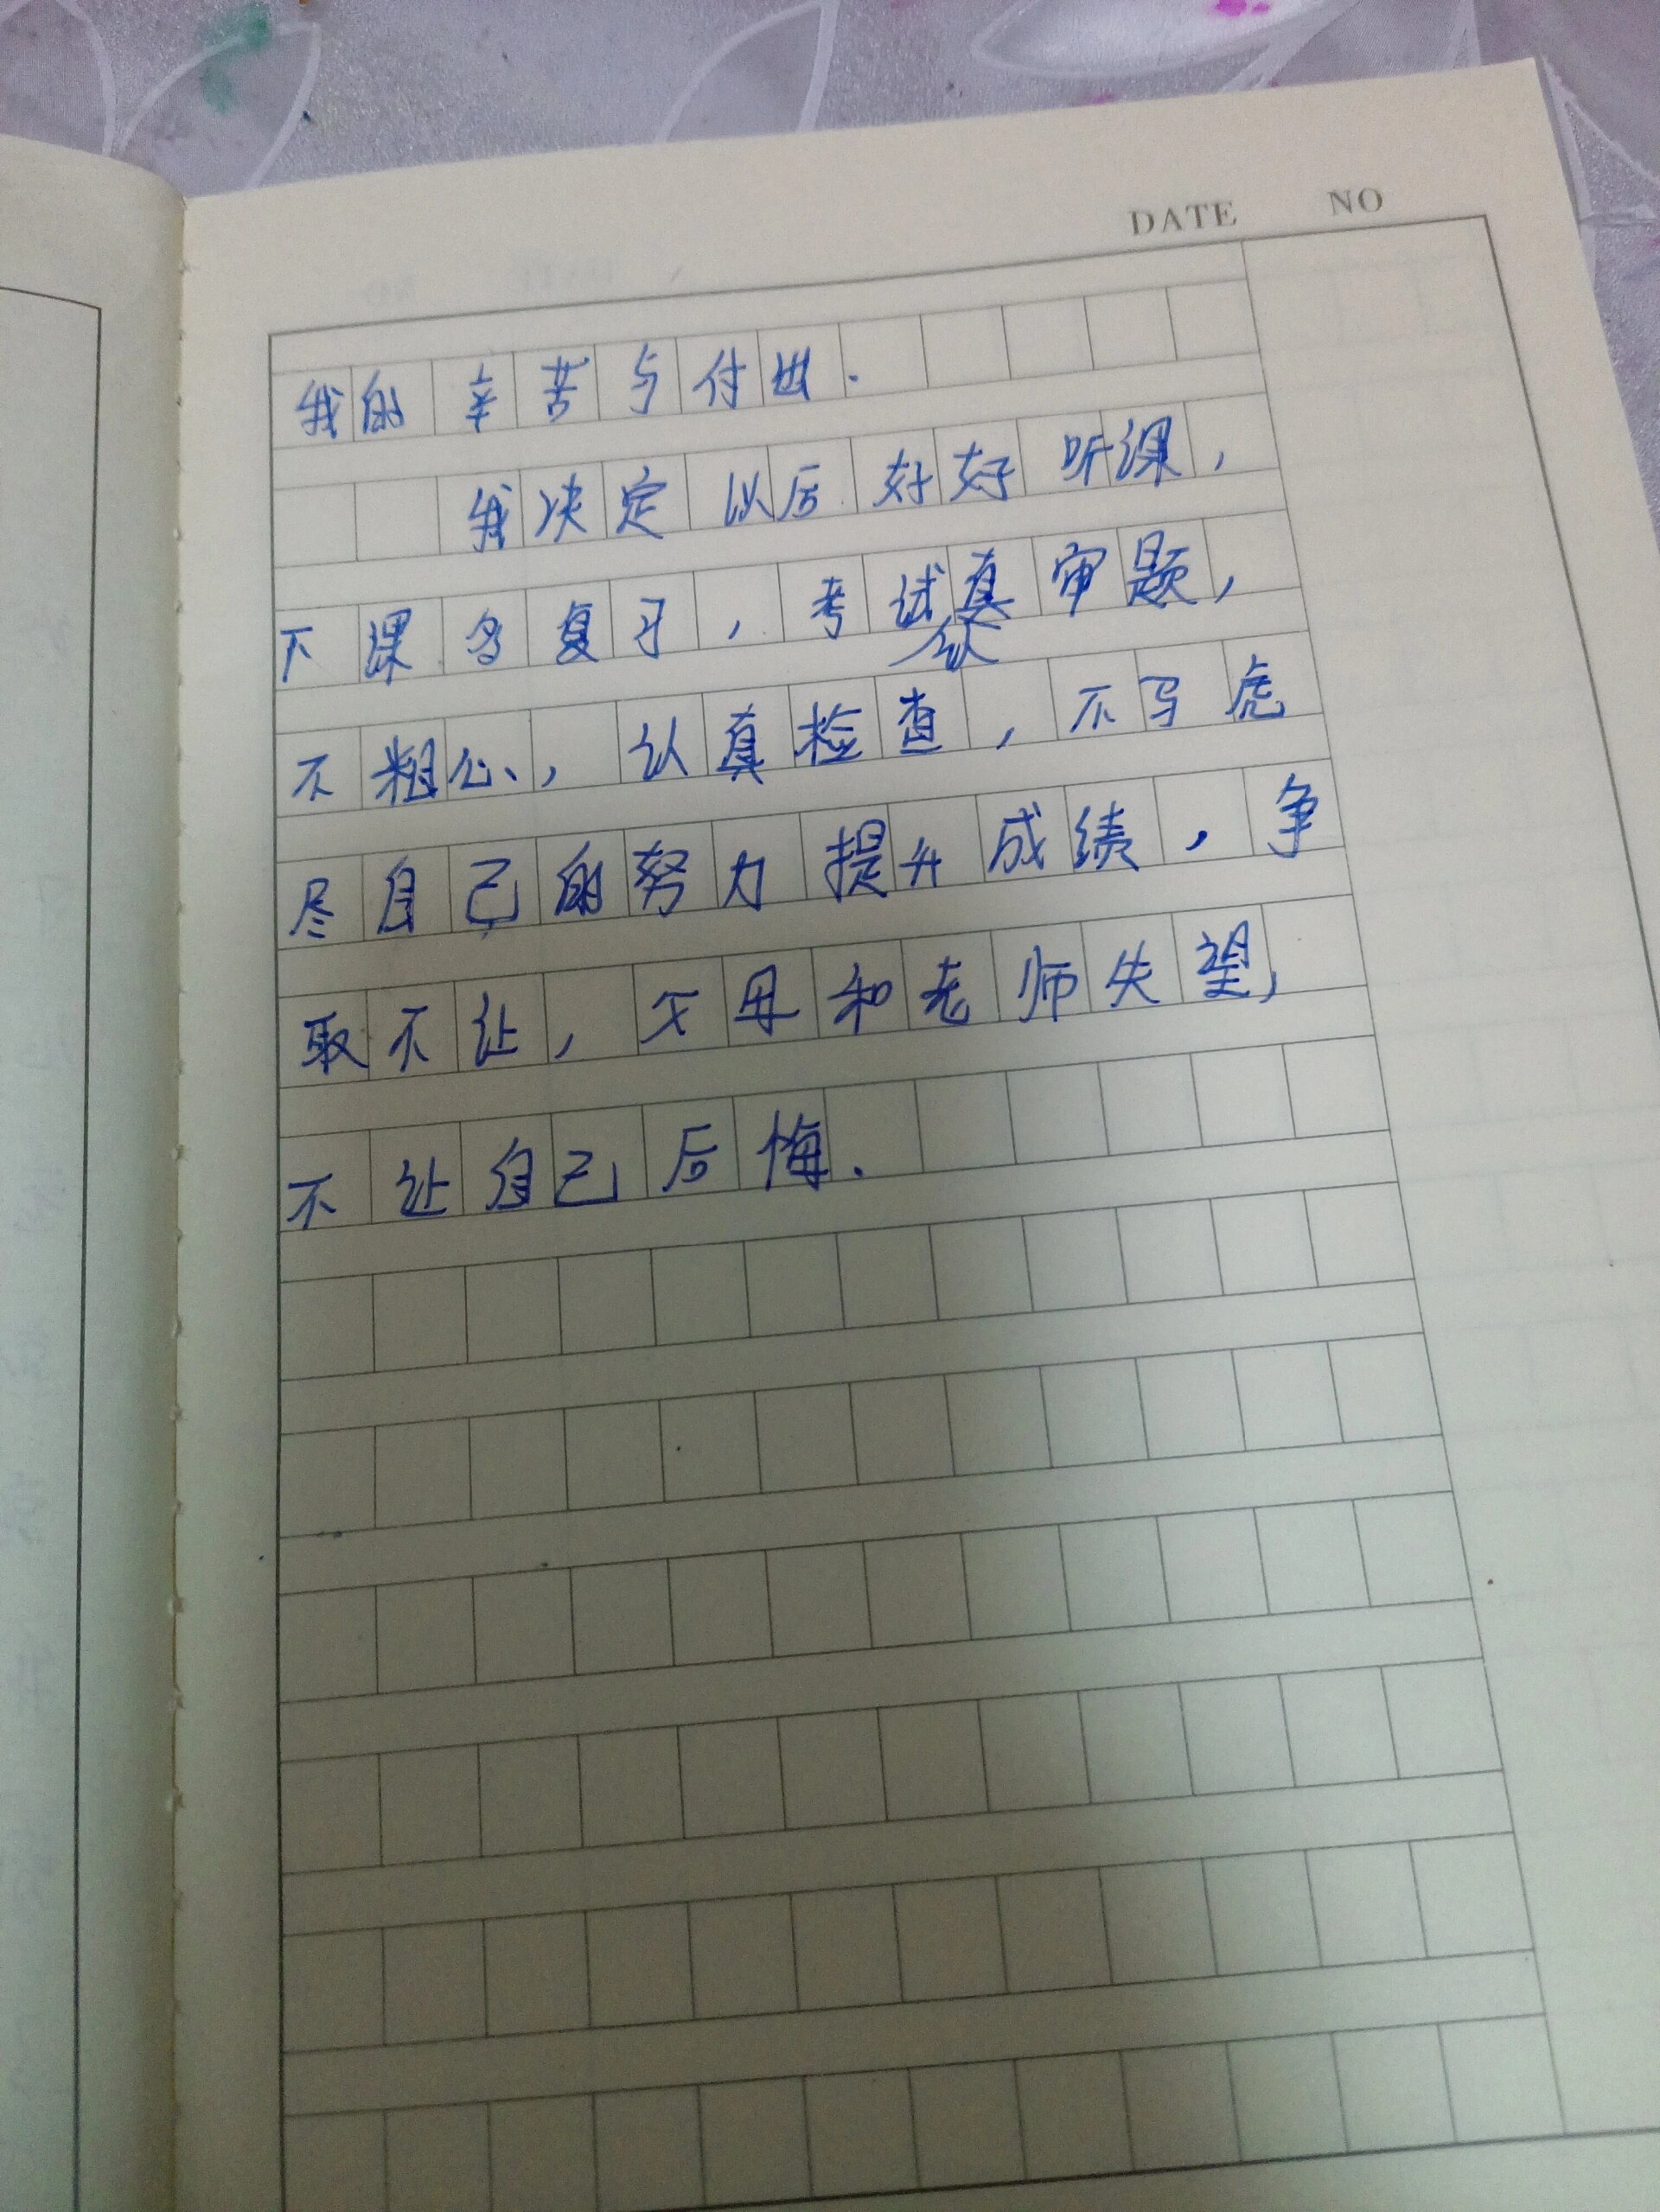 DATE NO
我的辛苦与付出.
我决定以后好好听课,
下课多复习,考试认真审题,
不粗心,认真检查,不马虎
尽自己的努力提升成绩,争
取不让,父母和老师失望,
不让自己后悔.